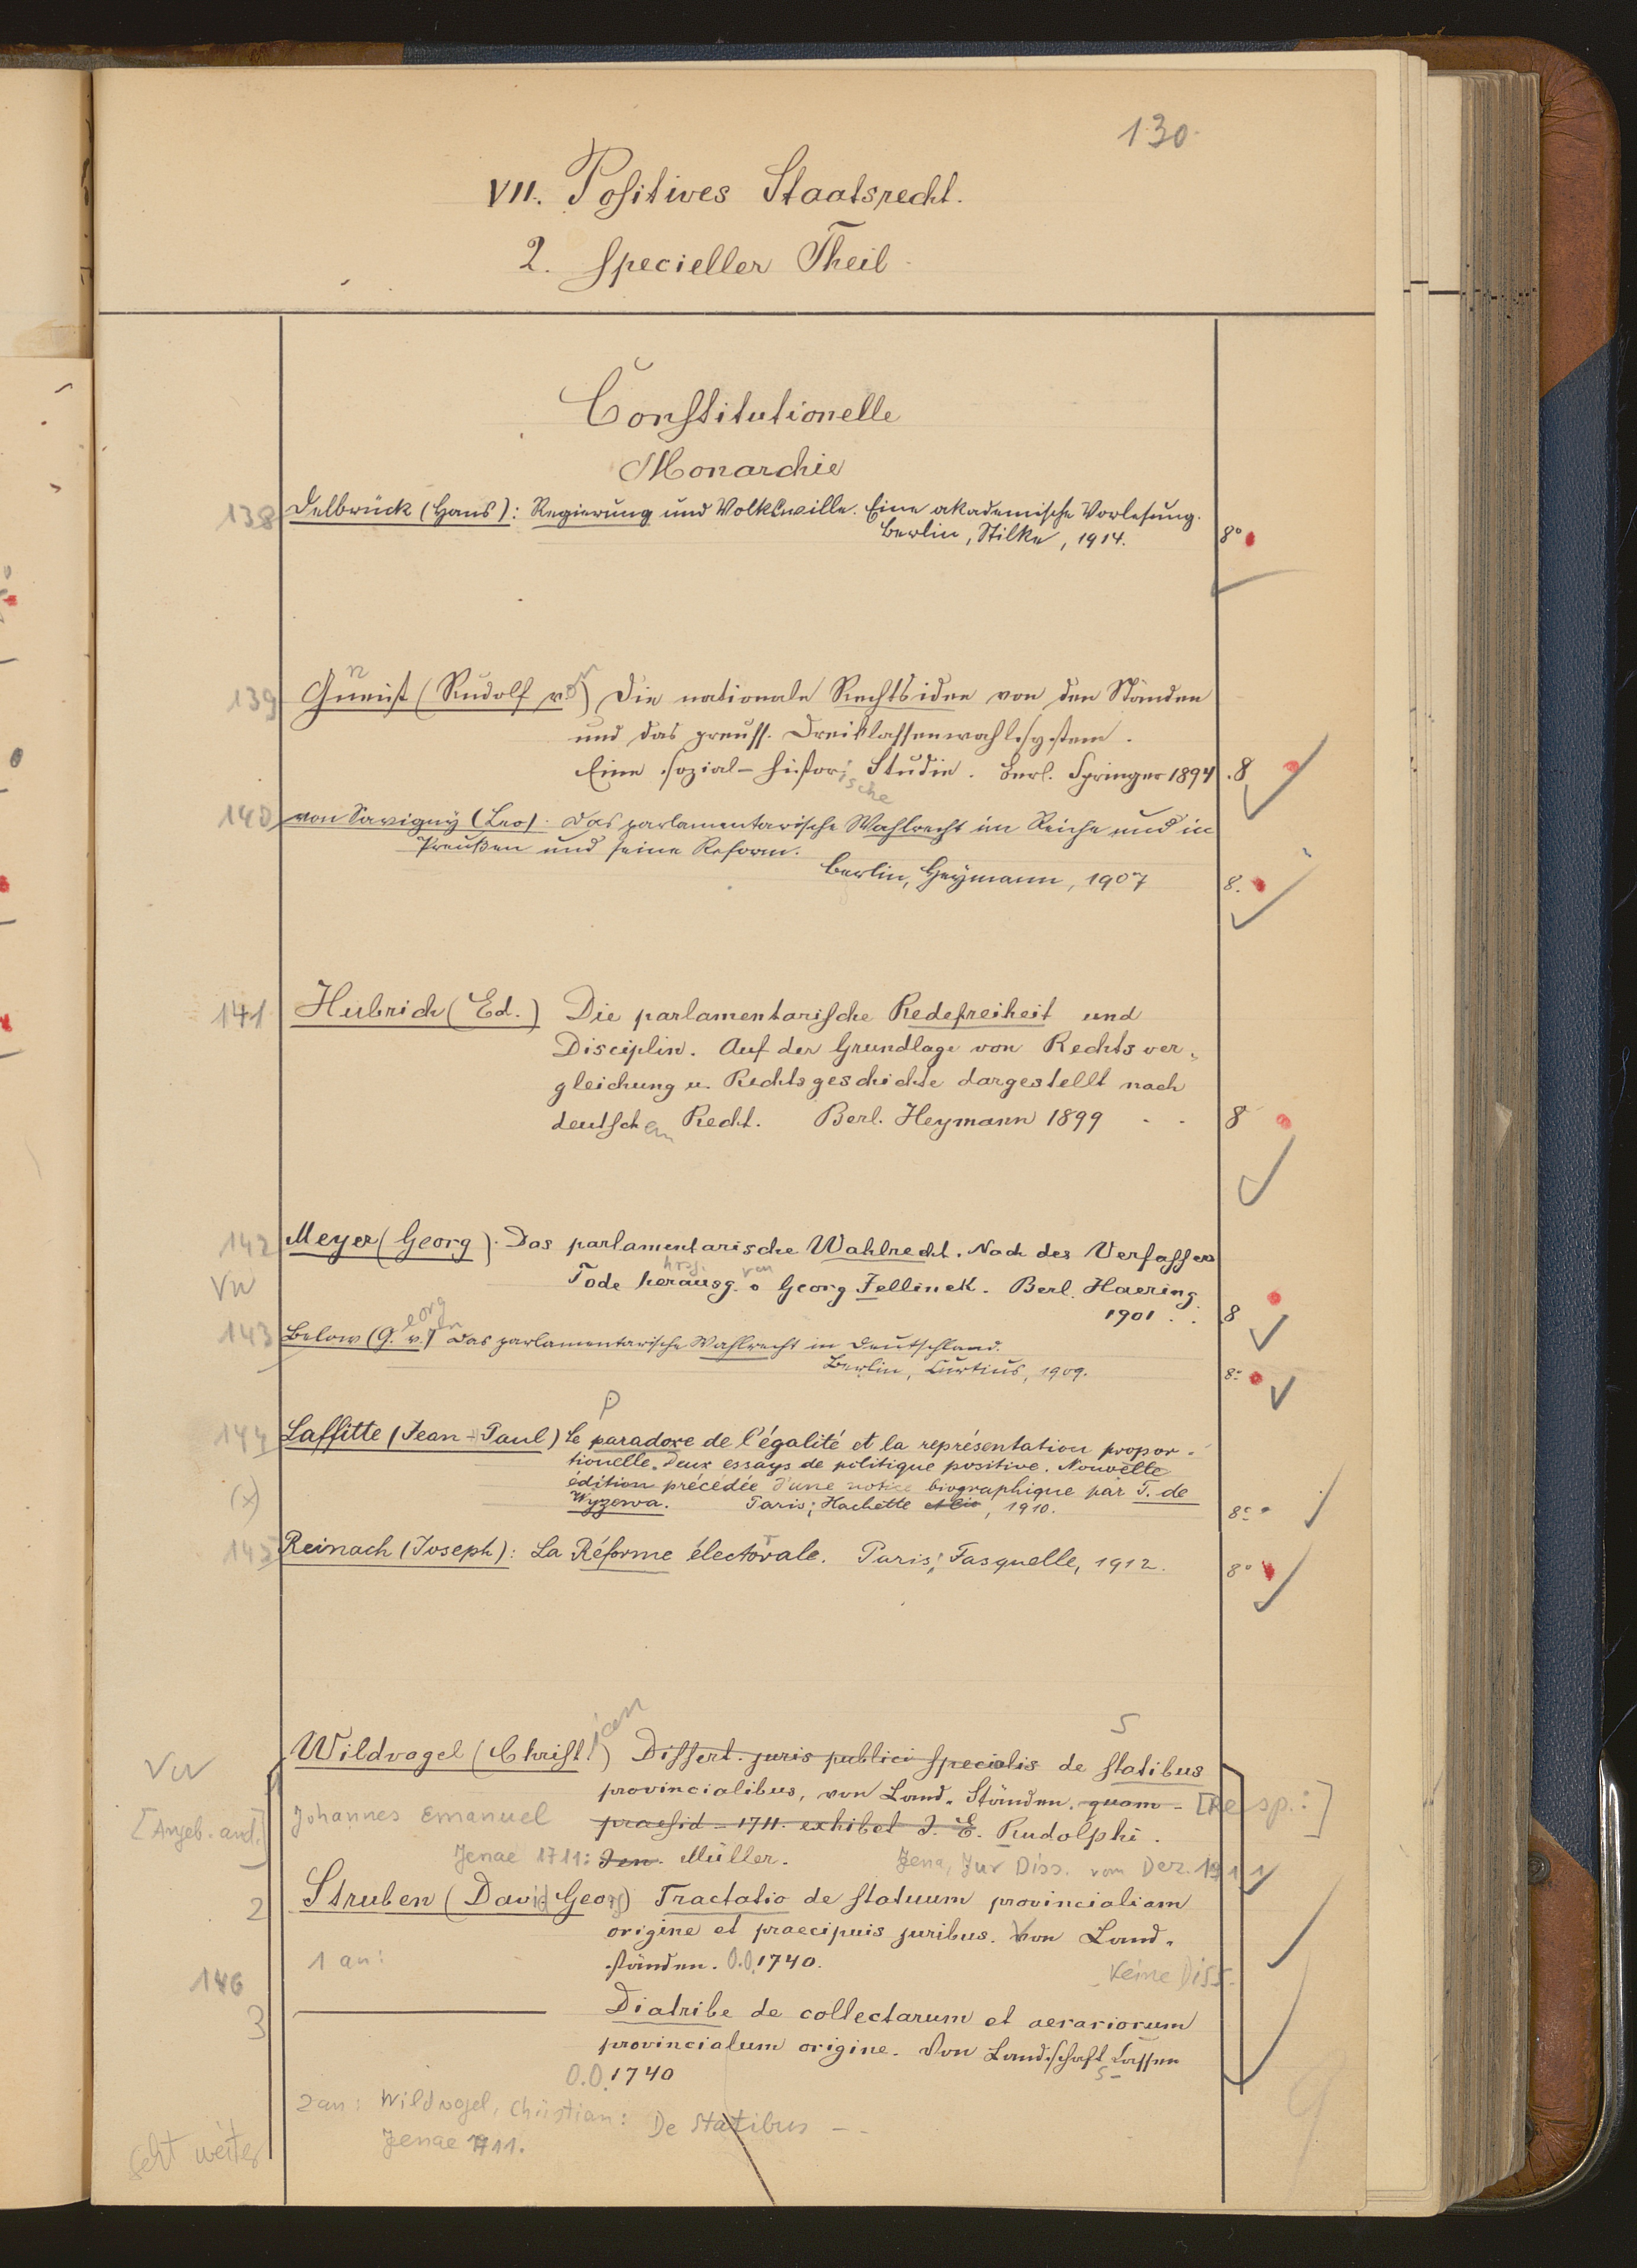 130
VII. Positives Staatsrecht.
2. Specieller Theil
Constitutionelle
Monarchie
138 Delbrück (Hans): Regierung und Volkswille. Eine akademische Vorlesung.
Berlin, Stilke, 1914. 8°
139 Gneist (Rudolf von) Die nationale Rechtsidee von den Ständen
und das preuss. Dreiklassenwahlsystem.
Eine sozial-historische Studie. Berl. Springer 1894. 8
140 von Savigny (Leo). Das parlamentarische Wahlrecht im Reiche und in
Preußen und seine Reform.
Berlin, Heymann, 1907 8.
141 Hubrich (Ed.) Die parlamentarische Redefreiheit und
Disciplin. Auf der Grundlage von Rechtsver-
gleichung u. Rechtsgeschichte dargestellt nach
deutschem Recht. Berl. Heymann 1899 . . 8
142 Meyer (Georg). Das parlamentarische Wahlrecht. Nach des Verfassers
VW Tode herausg. v Georg Jellinek. Berl. Haering
hrsg. von
1901 . . 8
143 Below (Georg von) Das parlamentarische Wahlrecht in Deutschland.
Berlin, Curtius, 1909. 8°
P
144 Laffitte (Jean-Paul) Le paradoxe de l'égalité et la représentation propor-
tionelle. Deux essays de politique positive. Nouvelle
édition précédée d'une notice biographique par T. de
(x) Wyzewa. Paris; Hachette et Cie, 1910. 8°
145 Reinach (Joseph): La Réforme électorale. Paris; Fasquelle, 1912. 8°
VW Wildvogel (Christian) Dissert. juris publici specialis de statibus
S
provincialibus, von Land-Ständen. quam - [Resp.:]
[Angeb. an1.] Johannes Emanuel praesid - 1711. exhibet J. E. Rudolphi.
Jenae 1711: Jen. Müller. Jena, Jur Diss. vom Dez. 1711
2 Struben (David Georg) Tractatio de statuum provincialiam
origine et praecipuis juribus. Von Land-
1 an: ständen. O.O. 1740. Keine Diss.
146
3 Diatribe de collectarum et aerariorum
provincialum origine. Von Landschaftscassen
O.O. 1740
2 an: Wildvogel, Christian: De Statibus --
Jenae 1711.
geht weiter